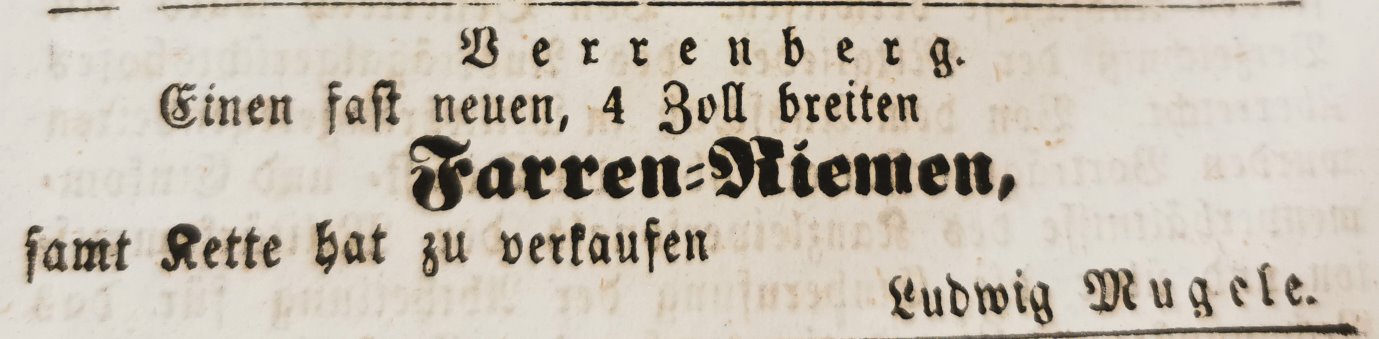 Verrenberg.
Einen faſt neuen, 4 Zoll breiten
Farren-Riemen,
ſamt Kette hat zu verkaufen
Ludwig Mugele.